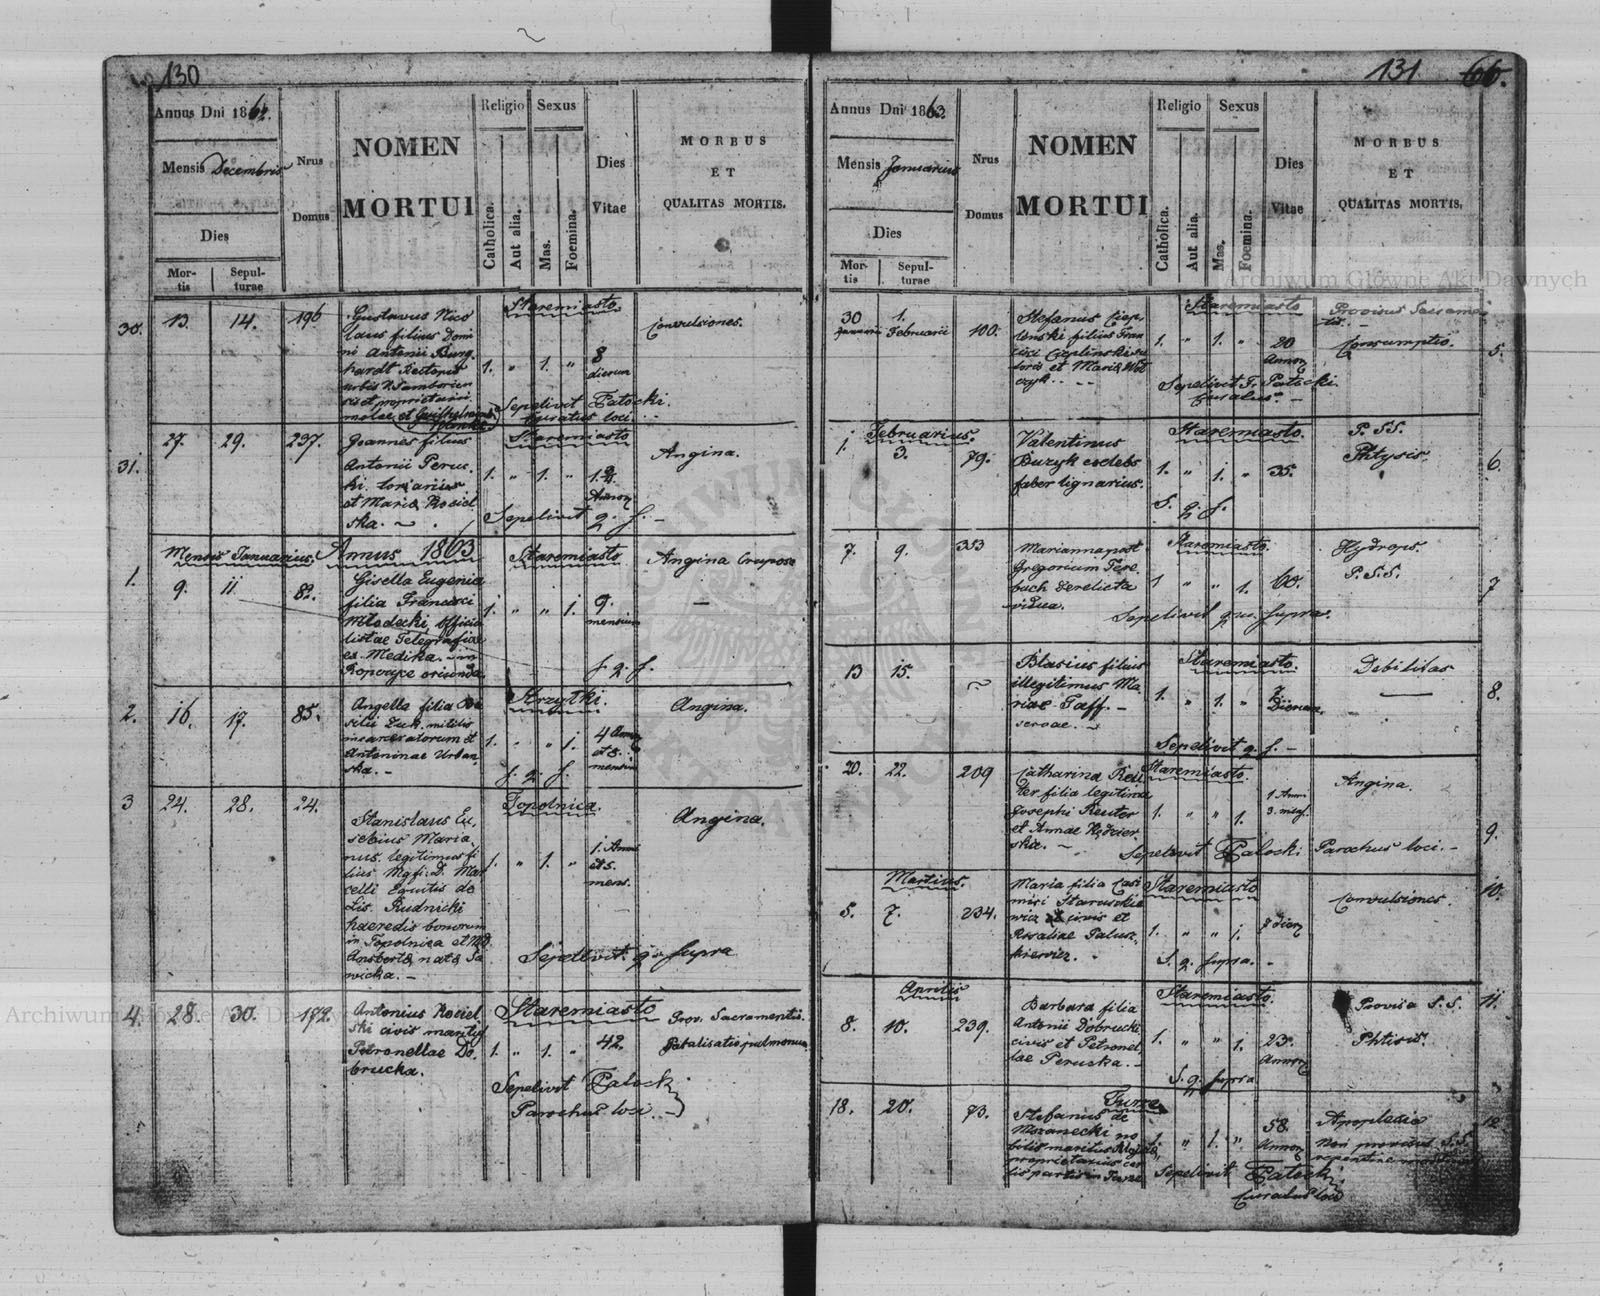 130
Annus Dni 1862.
Mensis Decembris
Dies
Mortis
Sepulturae
Nrus Domus
NOMEN MORTUI
Religio
Catholica.
Aut alia.
Sexus
Mas.
Foemina.
Dies Vitae
MORBUS
ET
QUALITAS MORTIS.
30. 13. 14. 196
Gustavus Nico
laus filius Domi
ni Antonii Burg
hardt Rectoris
urbis
et proprietarii
molae et
Staremiasto
1. " 1. "
8
dierum
Convulsiones.
Sepelivit Patocki
Curatus loci.
31. 27. 29. 237.
Joannes filius
Antonii Perus
ki
et Mariae Kociel
ska.
Staremiasto
1. " 1. "
Annor
Angina.
Sepelivit q. s.
Mensis Januarius. Annus 1863
1. 9. 11 82.
Gisella Eugenia
filia Francisci
Młodecki officia
listae Telegrafiae
ex Medika.
oriunda
Staremiasto
1. " " 1.
9.
mensium
Angina Crouposa
s. q. s.
2. 16. 17. 85.
Angella filia Ba
silii
incarceratorum et
Antoninae Urban
ska.
Strzyłki.
1. " " 1.
4 Annor
et 8.
mensium
Angina.
s. q. s.
3 24. 28. 24.
Stanislaus Eu
sebius Maria
nus legitimus fi
lius Mgfi. D. Mar
celli Equitis de
Lis. Rudnicki
haeredis bonorum
in Topolnica et
natae Sa
wicka.
Topolnica.
1. " 1. "
1. Anni
et 5.
mens.
Angina.
Sepelivit qu supra
4. 28. 30. 172.
Antonius Kociel
ski civis maritus
Petronellae Do
brucka.
Staremiasto
1. " 1. "
42.
Prov. Sacramentis.
pulmonum
Sepelivit Patocki
Parochus loci.
131 66.
Annus Dni 1863
Mensis Januarius
Dies
Mortis
Sepulturae
Nrus Domus
NOMEN MORTUI
Religio
Catholica.
Aut alia.
Sexus
Mas.
Foemina.
Dies Vitae
MORBUS
ET
QUALITAS MORTIS.
30 Januarii 1. Februarii 100.
Stefanus Ciep
linski filius Fran
cisci Cieplinski su
toris et Mariae Woł
czyk.
Staremiasto
1. " 1. "
20
Annor
Provisus Sacramen
tis.
Consumptio.
5.
Sepelivit F. Patocki
Curatus.
Februarius.
1. 3. 79.
Valentinus
Buzyk coelebs
faber lignarius.
Staremiasto.
1. " 1. "
35.
P. SS.
Phtysis.
6.
S. q. s.
7. 9. 353
Marianna post
Gregorium Tere
bach derelicta
vidua.
Staremiasto.
1 " " 1.
60.
Hydrops.
P. S.S.
7
Sepelivit qu. supra.
13 15.
Blasius filius
illegitimus Ma
riae Taff.
servae.
Staremiasto.
1. " 1. "
7
Dierum.
Debilitas
8.
Sepelivit q. s.
20. 22. 209
Catharina Reu
ter filia legitima
Josephi Reuter
et Annae Kędzier
ska.
Staremiasto.
1. " " 1.
1 Anni
3. mens.
Angina.
9.
Sepelivit Patocki Parochus loci.
Martius.
5. 7. 234.
Maria filia Casi
miri Staruszkie
wicz civis et
Rosaliae Palusz
kiewicz.
Staremiasto
1. " " 1.
7 dier
Convulsiones.
10.
S. q. supra.
Aprilis
8. 10. 239.
Barbara filia
Antonii Dobrucki
civis et Petronel
lae Peruska.
Staremiasto.
1. " " 1.
23.
Annor
Provisa S. S.
Phtisis.
11
S. q. supra
18. 20. 73.
Stefanus de
Mszanecki no
bilis maritus
proprietarius cer
tis partis in Turze
Turze
1. " 1. "
58.
Annor
Apoplexia
Non provisus S.S.
repentine
12
Sepelivit Patocki
Curatus loci
Archiwum Główne Akt Dawnych
Archiwum Główne Akt Dawnych